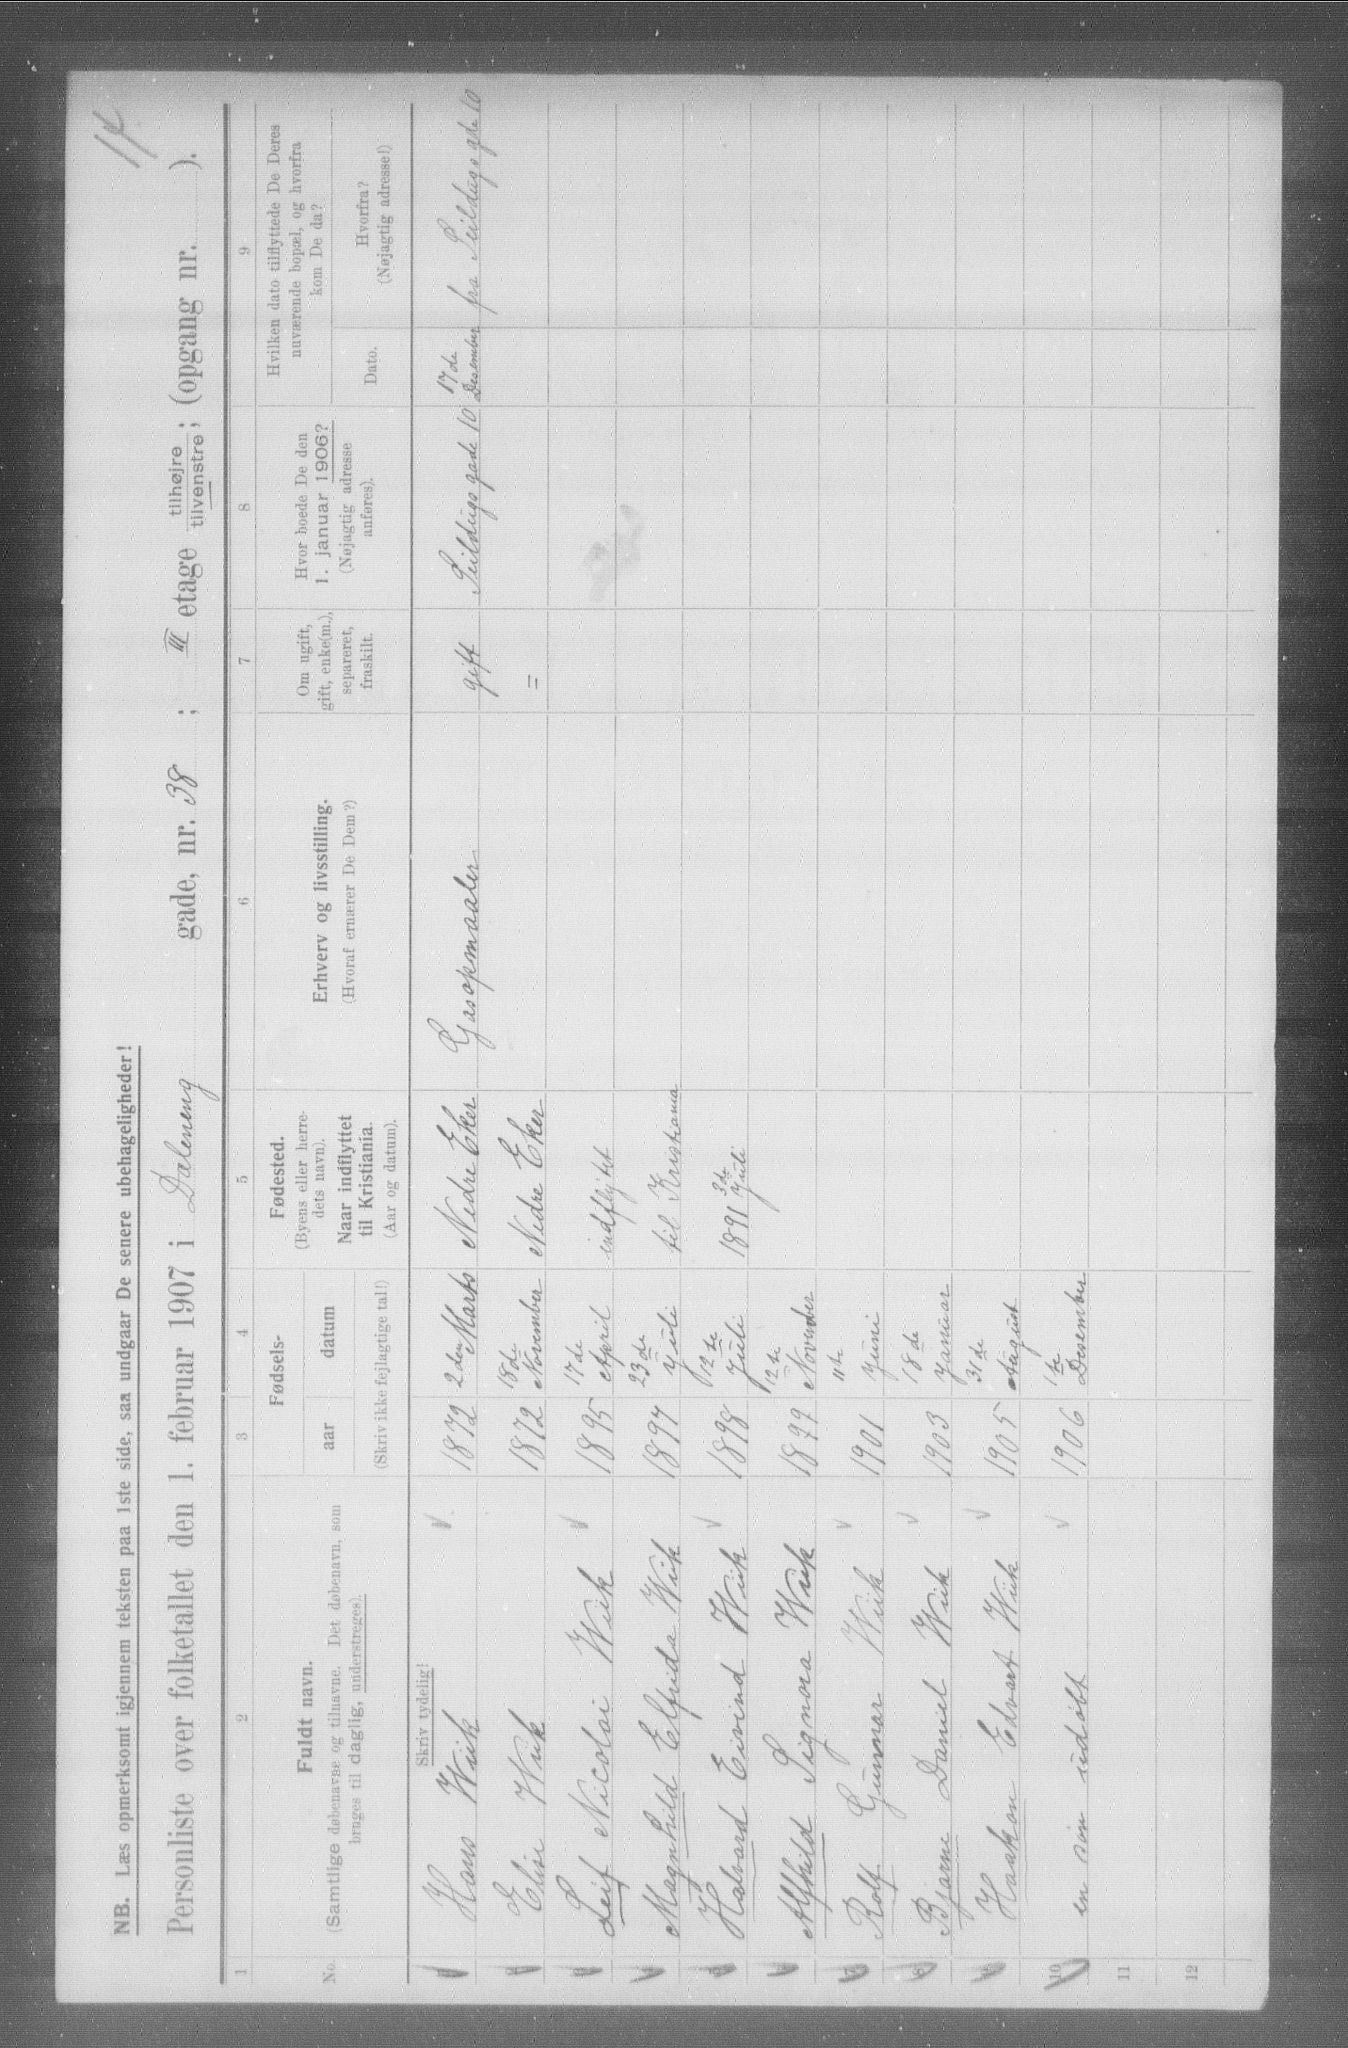 14
NB. Læs opmerksomt igjennem teksten paa 1ste side, saa undgaar De senere ubehageligheder!
Personliste over folketallet den 1. februar 1907 i Daleneng gade, nr. 38 ; III etage tilhøjre tilvenstre; (opgang nr. ).
1 2 3 4 5 6 7 8 9
No.
Fuldt navn.
(Samtlige døbenavne og tilnavne. Det døbenavn, som
bruges til daglig, understreges).
Fødsels-
aar datum
(Skriv ikke fejlagtige tal!)
Fødested.
(Byens eller herre-
dets navn).
Naar indflyttet
til Kristiania.
(Aar og datum).
Erhverv og livsstilling.
(Hvoraf ernærer De Dem?)
Om ugift,
gift, enke(m.),
separeret,
fraskilt.
Hvor boede De den
1. januar 1906?
(Nøjagtig adresse
anføres).
Hvilken dato tilflyttede De Deres
nuværende bopæl, og hvorfra
kom De da?
Dato.
Hvorfra?
(Nøjagtig adresse!)
Skriv tydelig!
Hans Wiik 1872 2den Marts Nedre Eker Gasopmaaler gift Seildugsgade 10 17de Desember fra Seildugsgde 10
Elise Wiik 1872 18de November Nedre Eker =
Leif Nicolai Wiik 1895 17de April indflyttet
Magnhild Elfrida Wiik 1897 23de Juli til Kristiania
Halvard Eivind Wiik 1898 12te Juli 1891 3de Juli
Alfhild Signora Wiik 1899 12te November
7 Rolf Gunnar Wiik 1901 11te Juni
8 Bjarne Daniel Wiik 1903 18de Januar
Haakon Edvart Wiik 1905 31de August
10 en søn udøbt 1906 1te Desember
11
12